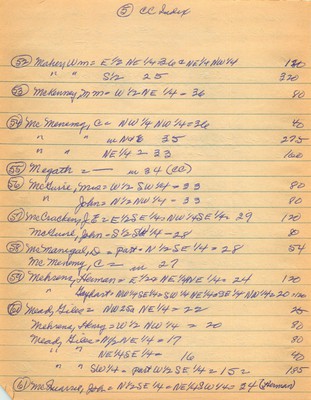 ⑤ CC Index
(52) Mahery, Wm = E1/2 NE 1/4 36 & NE 1/4 NW 1/4 120
" " S1/2 25 320
(53) McKenney, M m = W1/2 NE 1/4 = 36 80
(54) Mc Menomy, C = NW 1/4 NW 1/4 = 36 40
" " 35 275
" " NE 1/4 = 33 160
(55) Magath = — in 34 (CC)
(56) McGuire, Mrs = W1/2 SW 1/4 = 33 80
" John = N1/2 NW 1/4 - 33 80
(57) McCracken, J E = E1/2 SE 1/4 = NW 1/4 SE 1/4 = 29 120
McGuire, John = S1/2 SW 1/4 - 28 80
(58) McManigal, D = part = N1/2 SE 1/4 = 28 54
Mc Menomy, C = in 27
(59) Mehrens, Herman = E1/2 NE 1/4 = 24 120
" Gephart = NW 1/4 SE 1/4 = SW 1/4 NE 1/4 = SE 1/4 NW 1/4 = 20 = 120
(60) Meady, Giles = NE 1/4 = 22
Mehrens, = W1/2 NW 1/4 = 20 80
Meady, Giles = N1/2 NE 1/4 = 17 80
" " NE 1/4 SE 1/4 = 16 40
" " SW 1/4 = part W1/2 SE 1/4 = 15 = 185
(61) John = N1/2 SE 1/4 = NE 1/4 SW 1/4 = 24 (Herman)